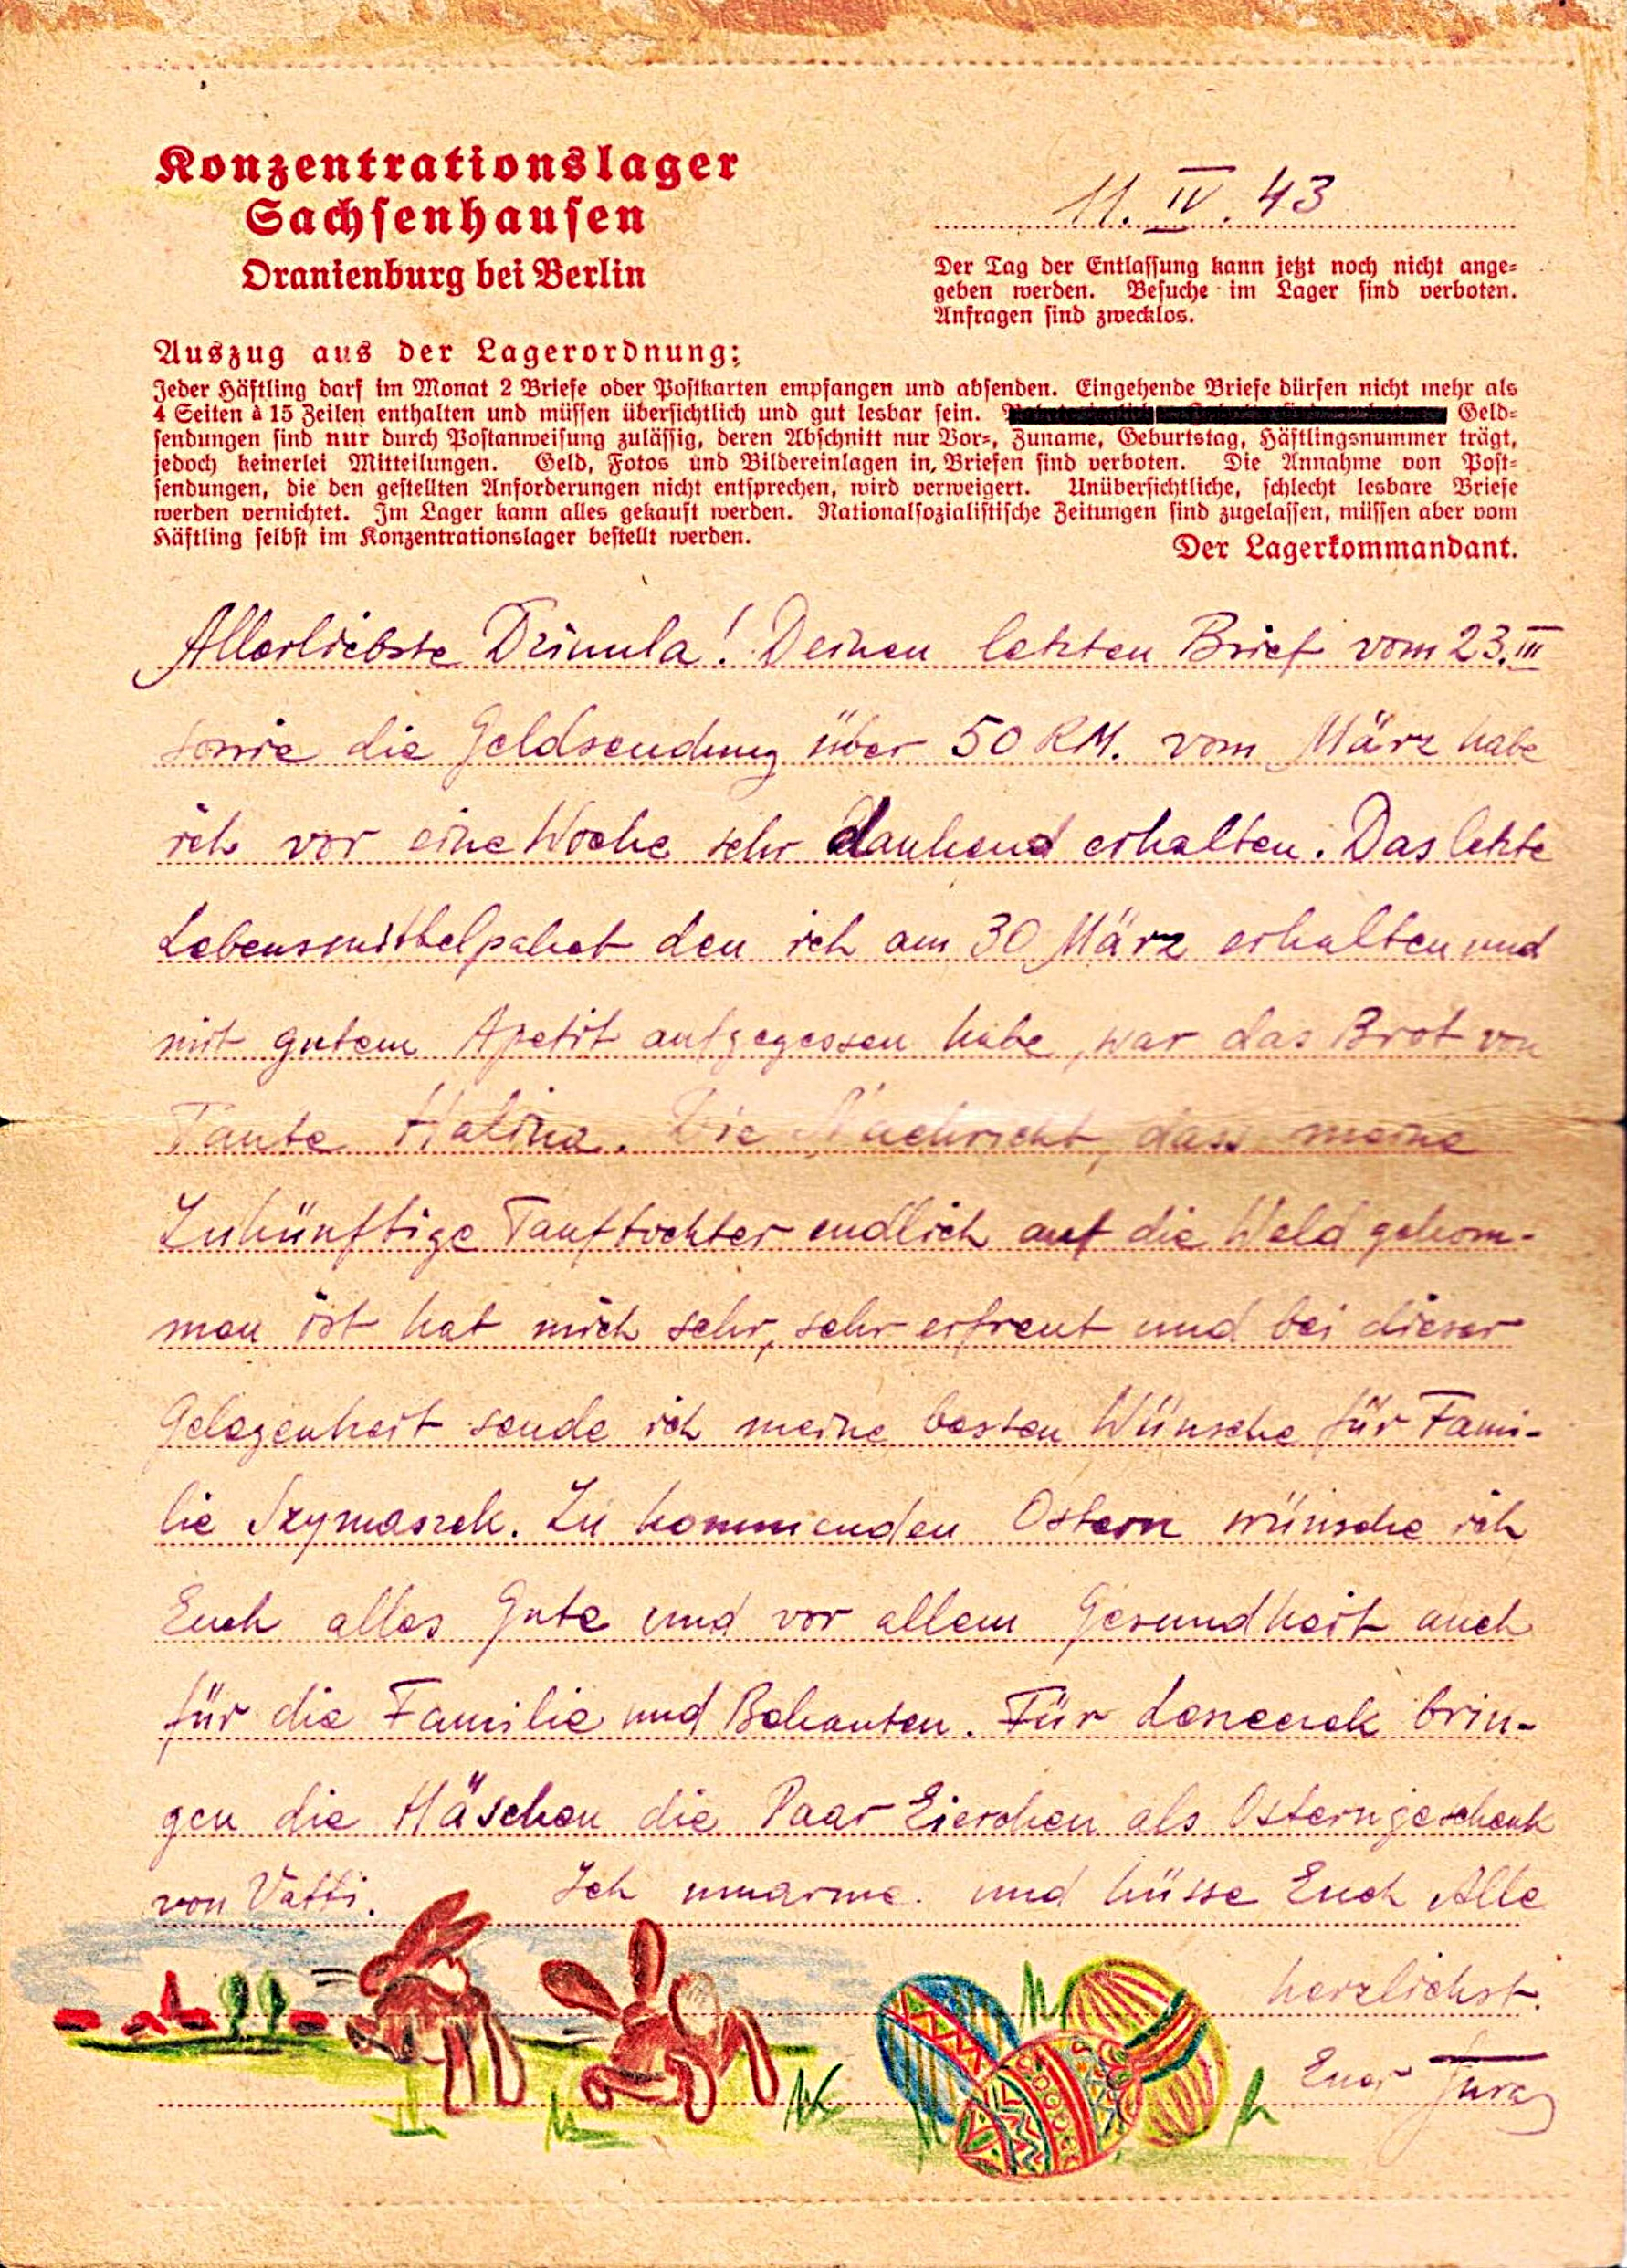 Konzentrationslager
Sachsenhausen
Oranienburg bei Berlin
11. IV. 43
Der Tag der Entlassung kann jetzt noch nicht ange-
geben werden. Besuche im Lager sind verboten.
Anfragen sind zwecklos.
Auszug aus der Lagerordnung:
Jeder Häftling darf im Monat 2 Briefe oder Postkarten empfangen und absenden. Eingehende Briefe dürfen nicht mehr als
4 Seiten à 15 Zeilen enthalten und müssen übersichtlich und gut lesbar sein. Geld-
sendungen sind nur durch Postanweisung zulässig, deren Abschnitt nur Vor-, Zuname, Geburtstag, Häftlingsnummer trägt,
jedoch keinerlei Mitteilungen. Geld, Fotos und Bildereinlagen in Briefen sind verboten. Die Annahme von Post-
sendungen, die den gestellten Anforderungen nicht entsprechen, wird verweigert. Unübersichtliche, schlecht lesbare Briefe
werden vernichtet. Im Lager kann alles gekauft werden. Nationalsozialistische Zeitungen sind zugelassen, müssen aber vom
Häftling selbst im Konzentrationslager bestellt werden.
Der Lagerkommandant.
Allerliebste ! Deinen letzten Brief vom 23. III
sowie die Geldsendung über 50 RM. vom März habe
ich vor eine Woche sehr dankend erhalten. Das letzte
Lebensmittelpaket den ich am 30 März erhalten und
mit gutem Apetit aufgegessen habe, war das Brot von
Tante Halina. Die Nachricht, dass meine
Zukünftige Tauftochter endlich auf die Weld gekom-
men ist hat mich sehr, sehr erfreut und bei dieser
Gelegenheit sende ich meine besten Wünsche für Fami-
lie Szymaszek. Zu kommenden Ostern wünsche ich
Euch alles Gute und vor allem Gesundheit auch
für die Familie und Bekanten. Für brin-
gen die Häschen die Paar Eierchen als Osterngeschenk
von Vatti. Ich umarme und küsse Euch Alle
herzlichst.
Euer Jura